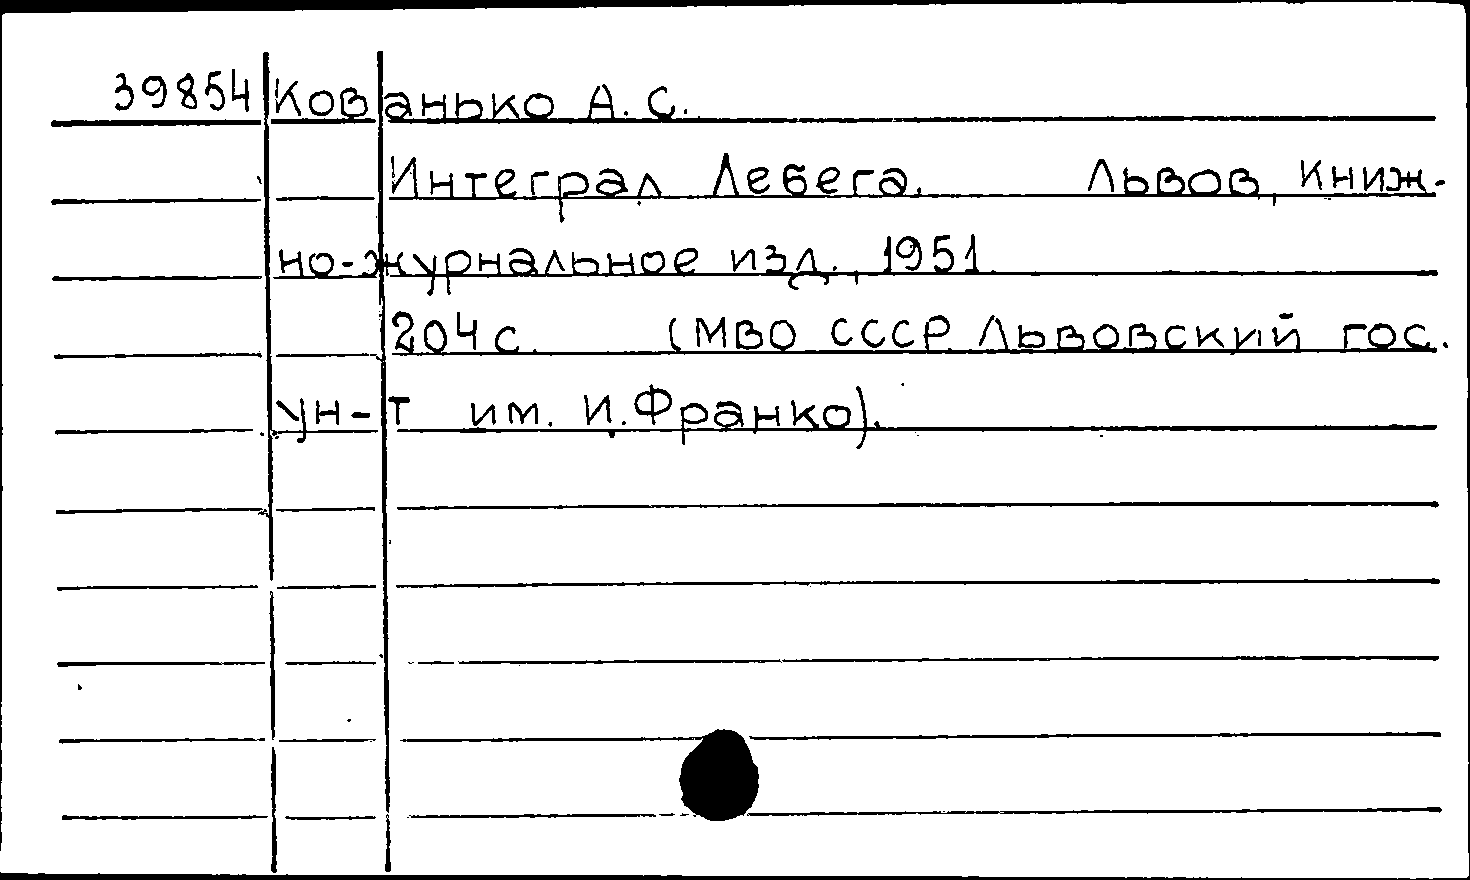 39854 Кованько А. С.
Интеграл Лебега. Львов, Книж-
но-журнальное изд., 1951.
204 с. (МВО СССР. Львовский гос.
ун-т им. И. Франко).